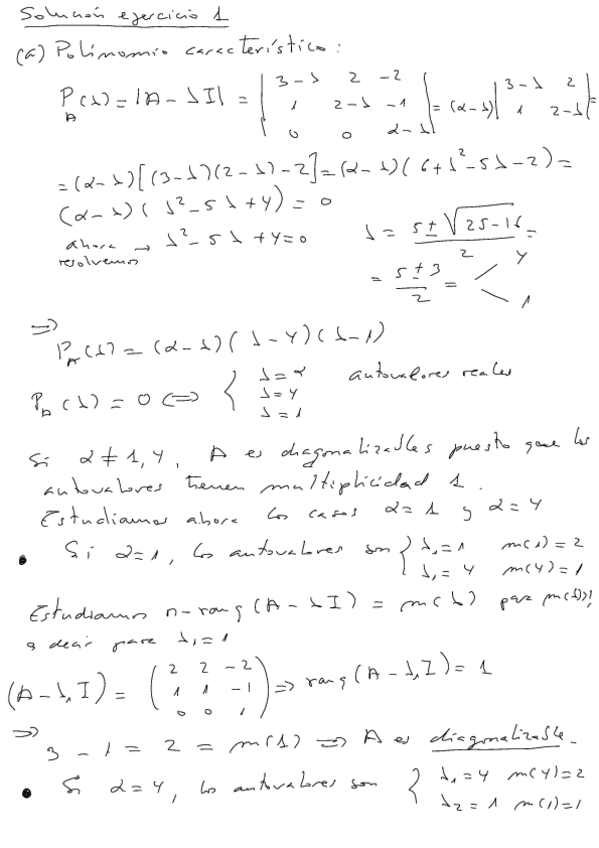 Solución ejercicio 1
(a) Polinomio característico:
P_A(λ) = |A - λI| = | 3-λ 2 -2 ; 1 2-λ -1 ; 0 0 α-λ | = (α-λ) | 3-λ 2 ; 1 2-λ | =
= (α-λ)[(3-λ)(2-λ)-2] = (α-λ)(6+λ²-5λ-2) =
(α-λ)(λ²-5λ+4) = 0
ahora resolvemos → λ²-5λ+4=0 λ = (5±√(25-16))/2 =
= (5±3)/2 = 4, 1
⇒ P_A(λ) = (α-λ)(λ-4)(λ-1)
P_A(λ) = 0 ⇔ { λ=α λ=4 λ=1 autovalores reales
Si α ≠ 1, 4, A es diagonalizables puesto que los
autovalores tienen multiplicidad 1.
Estudiamos ahora los casos α=1 y α=4
• Si α=1, los autovalores son { λ₁=1 m(1)=2
λ₁=4 m(4)=1
Estudiamos n-rang(A-λI) = m(λ) para
es decir para λ₁=1
(A-λ₁I) = ( 2 2 -2 ; 1 1 -1 ; 0 0 ) ⇒ rang(A-λ₁I) = 1
⇒ 3 - 1 = 2 = m(1) ⇒ A es diagonalizable.
• Si α=4, los autovalores son { λ₁=4 m(4)=2
λ₂=1 m(1)=1